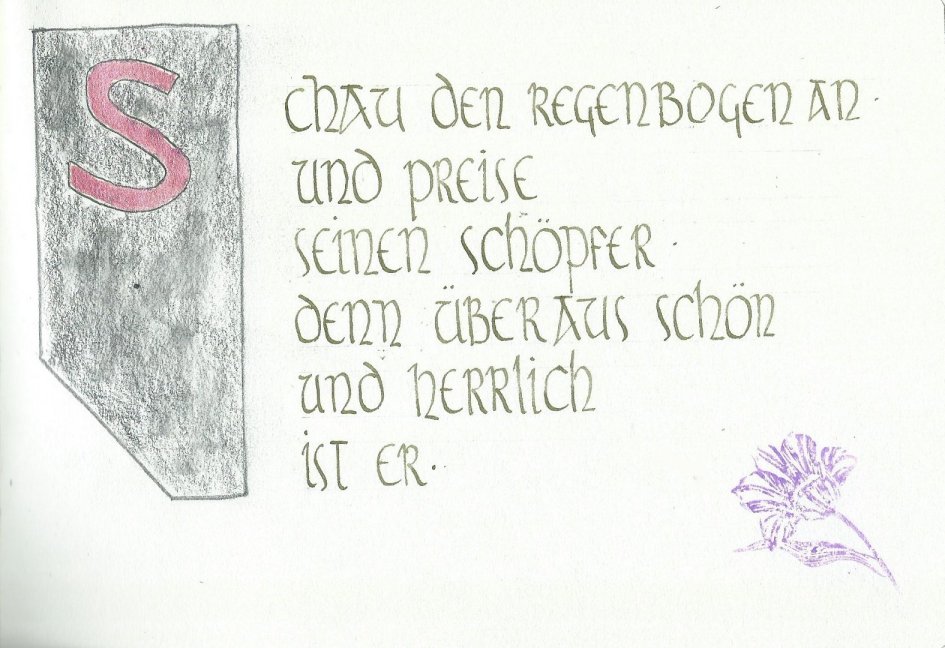 Schau den Regenbogen an.
und preise
seinen Schöpfer.
denn überaus schön
und herrlich
ist er.